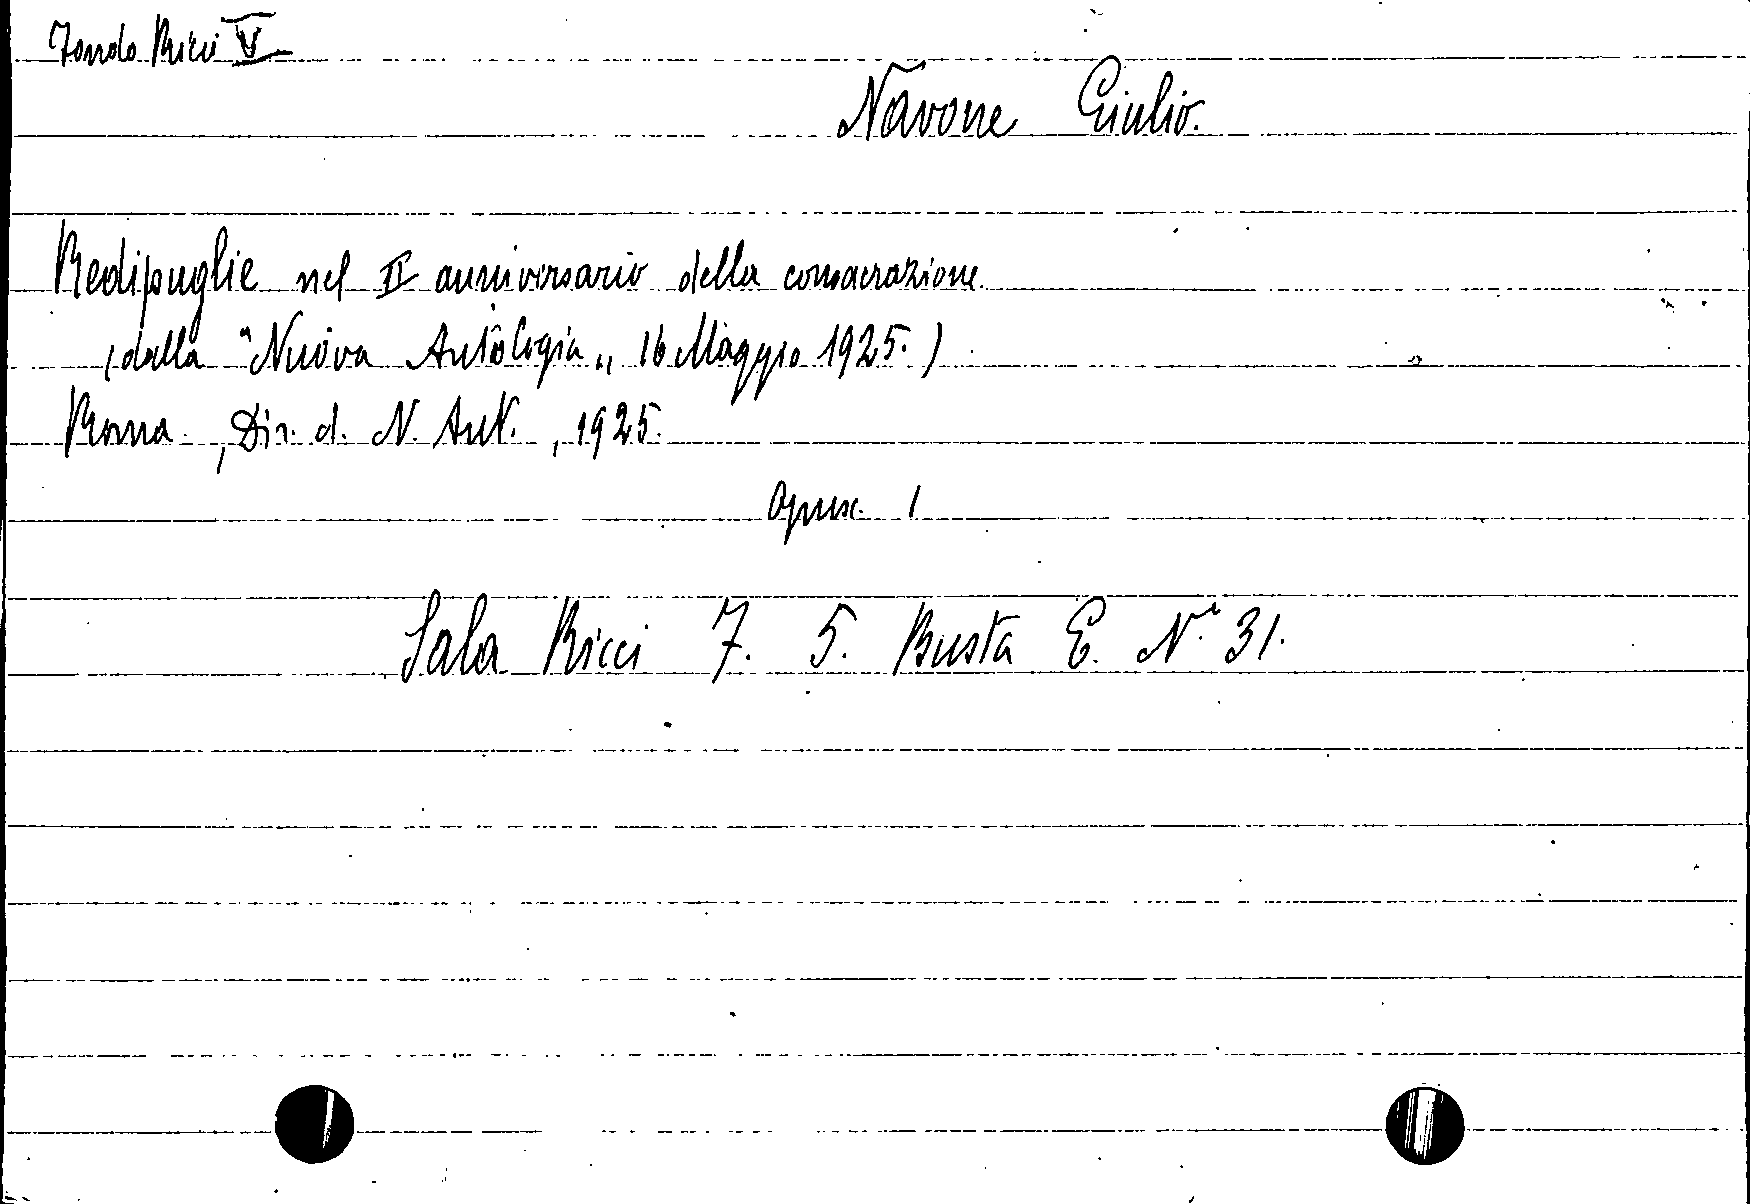 Fondo Ricci V
Navone Giulio.
Redipuglie nel II anniversario della consacrazione
(dalla "Nuova Antologia„ 16 Maggio 1925.)
Roma, Dir. d. N. Ant., 1925.
Opusc. 1
Sala Ricci 7. 5. Busta E. N° 31.